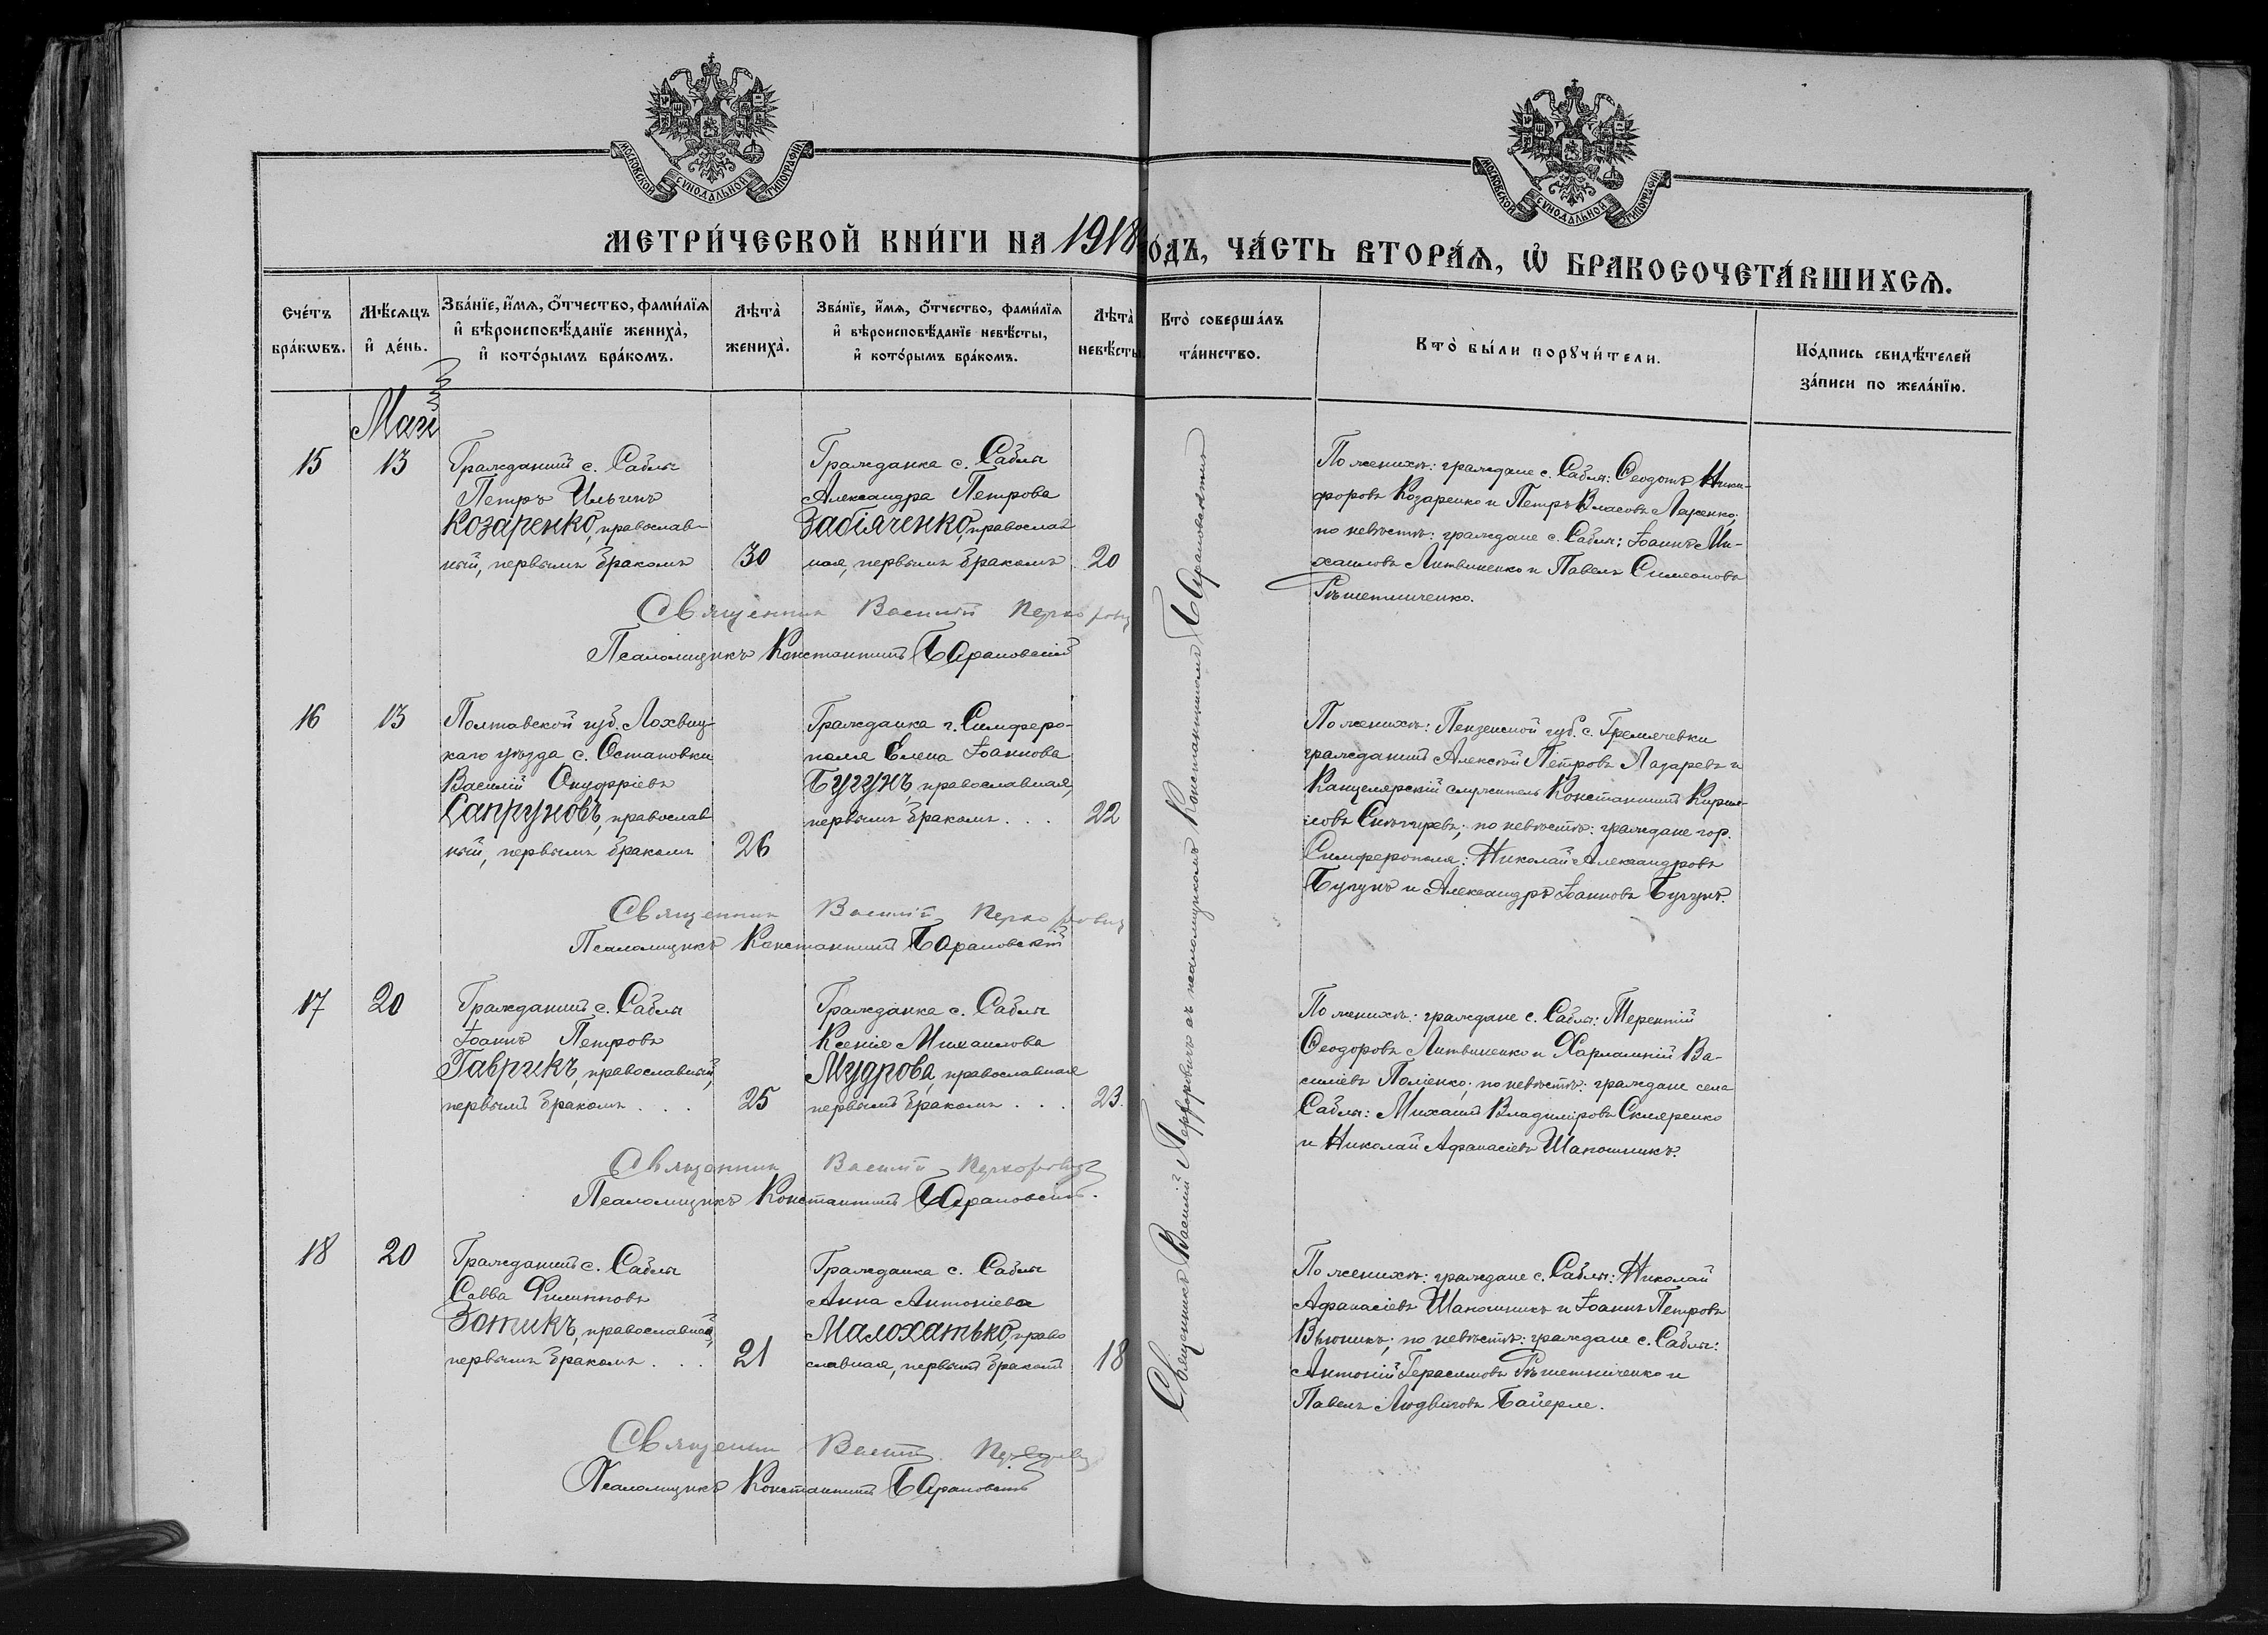 МОСКОВСКОЙ СѴНОДАЛЬНОЙ ТИПОГРАФІИ
МОСКОВСКОЙ СѴНОДАЛЬНОЙ ТИПОГРАФІИ
МЕТРИ́ЧЕСКОЙ КНИ́ГИ НА 1918 О́ДЪ, ЧА́СТЬ ВТОРА́Ѧ, Ѡ҆ БРАКОСОЧЕТА́ВШИХСѦ.
Сче́тъ
бра́кѡвъ.
Мѣ́сѧцъ
и҆ де́нь.
Зва́нїе, и҆́мѧ, ѻ҆́тчество, фами́лїѧ
и҆ вѣроисповѣ́данїе жениха̀,
и҆ кото́рымъ бра́комъ.
Лѣта̀
жениха̀.
Зва́нїе, и҆́мѧ, ѻ҆́тчество, фами́лїѧ
и҆ вѣроисповѣ́данїе невѣ́сты,
и҆ кото́рымъ бра́комъ.
Лѣта̀
невѣ́сты
Кто̀ соверша́лъ
та́инство.
Кто̀ бы́ли порꙋчи́тели.
По́дпись свидѣ́телей
за́писи по жела́нїю.
Май
15
13
Гражданинъ с. Саблы
Петръ Ильинъ
Козаренко, православ-
ный, первымъ бракомъ
30
Гражданка с. Саблы
Александра Петрова
Забіяченко, православ
ная, первымъ бракомъ
20
По женихѣ: граждане с. Саблы: Ѳеодотъ Ники-
форовъ Козаренко и Петръ Власовъ
по невѣстѣ: граждане с. Саблы: Іоаннъ Ми-
хаиловъ Литвиненко и Павелъ Симеоновъ
Рѣшетниченко.
Священник Василій Перфорович
Псаломщикъ Константинъ Барановскій
16
13
Полтавской губ. Лохвиц-
каго уѣзда с. Остановки
Василій Онуфріевъ
Сапруновъ, православ
ный, первымъ бракомъ
26
Гражданка г. Симферо-
поля Елена Іоаннова
Бугунъ, православная,
первымъ бракомъ . . .
22
По женихѣ: Пензенской губ. с. Гремячевки
гражданинъ Алексѣй Петровъ Лазаревъ и
Канцелярскій служитель Константинъ Кирил-
ловъ Снѣгиревъ; по невѣстѣ: граждане гор.
Симферополя: Николай Александровъ
Бугунъ и Александръ Іоанновъ Бугунъ.
Священник Василій Перфорович
Псаломщикъ Константинъ Барановскій
17
20
Гражданинъ с. Саблы
Іоаннъ Петровъ
Гаврикъ, православный,
первымъ бракомъ . . .
25
Гражданка с. Саблы
Ксенія Михаилова
Мудрова, православная
первымъ бракомъ . . .
23.
По женихѣ: граждане с. Саблы: Терентій
Ѳеодоровъ Литвиненко и Харлампій Ва-
силіевъ Поліенко; по невѣстѣ: граждане села
Саблы: Михаилъ Владиміровъ Скляренко
и Николай Афанасіевъ Шапошникъ.
Священник Василій Перфорович
Псаломщикъ Константинъ Барановскій.
18
20
Гражданинъ с. Саблы
Савва Филипповъ
Зотикъ, православный,
первымъ бракомъ . . .
21
Гражданка с. Саблы
Анна Антоніева
Малохатько, право
славная, первымъ бракомъ
18
По женихѣ: граждане с. Саблы: Николай
Афанасіевъ Шапошникъ и Іоаннъ Петровъ
Вьюникъ; по невѣстѣ: граждане с. Саблы:
Антоній Герасимовъ Рѣшетниченко и
Павелъ Людвиговъ Байерле.
Священник Василій Перфорович
Псаломщикъ Константинъ Барановскій
Священникъ Василій Перфоровичъ съ псаломщикомъ Константиномъ Барановскимъ